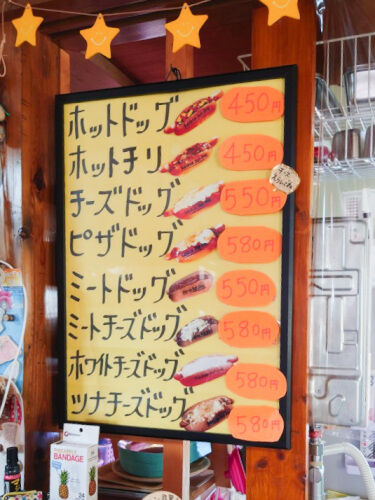 ホットドッグ 450円
ホットチリ 450円
チーズドッグ 550円
ピザドッグ 580円
ミートドッグ 550円
ミートチーズドッグ 580円
ホワイトチーズドッグ 580円
ツナチーズドッグ 580円
BANDAGE
24